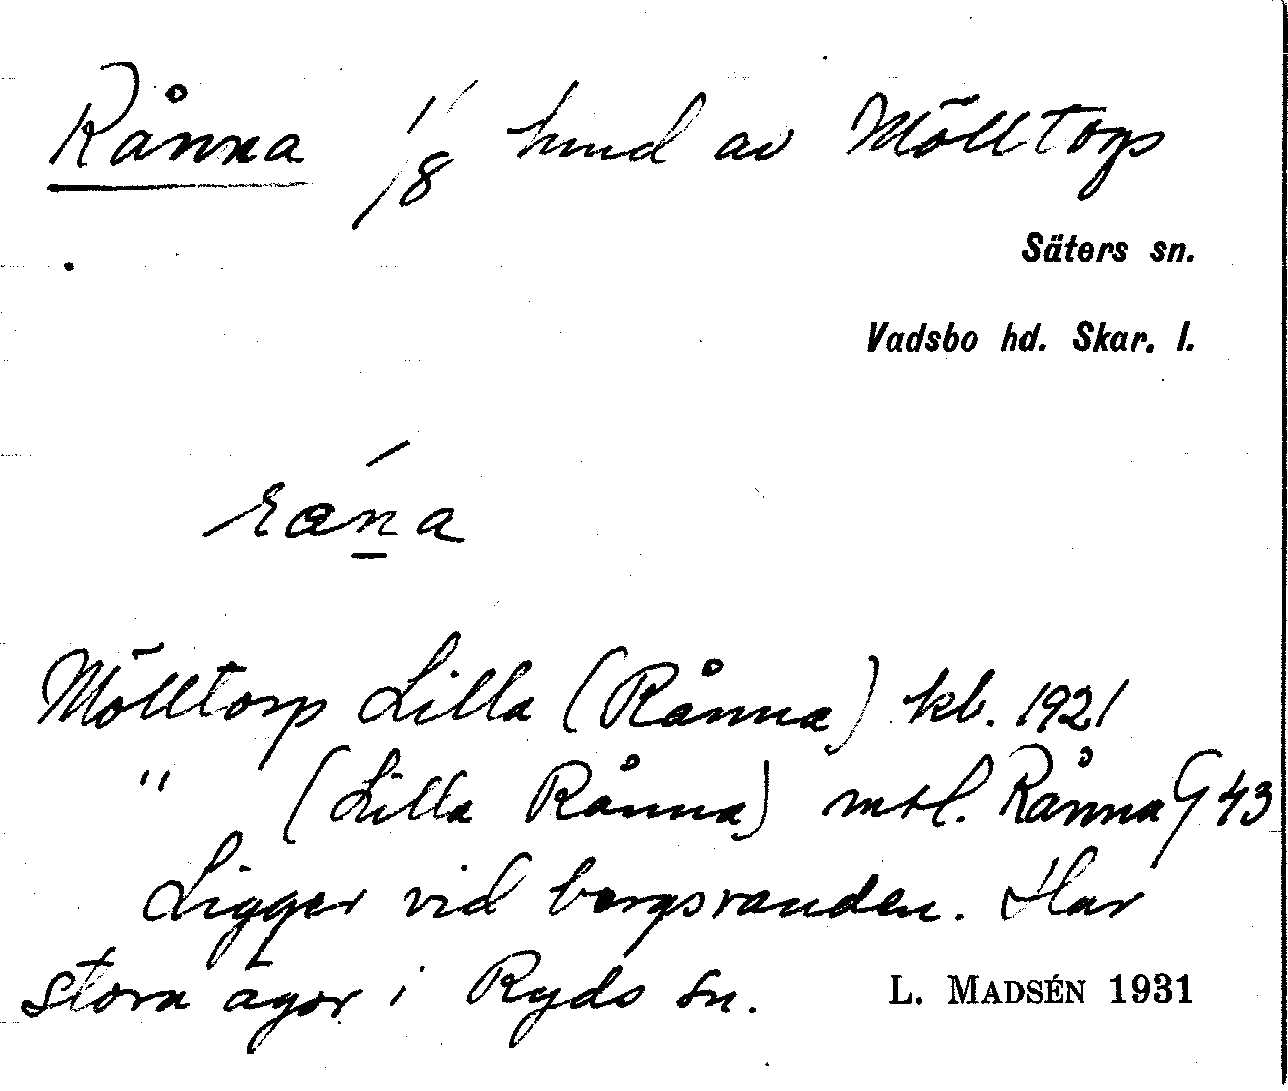 Rånna 1/8 hmd av Mölltorp
Säters sn.
Vadsbo hd. Skar. l.
Mölltorp Lilla (Rånna) kb. 1921
" (Lilla Rånna) mtl. Rånna G 43
Ligger vid bergsranden. Har
stora ägor i Ryds sn.
L. MADSÉN 1931